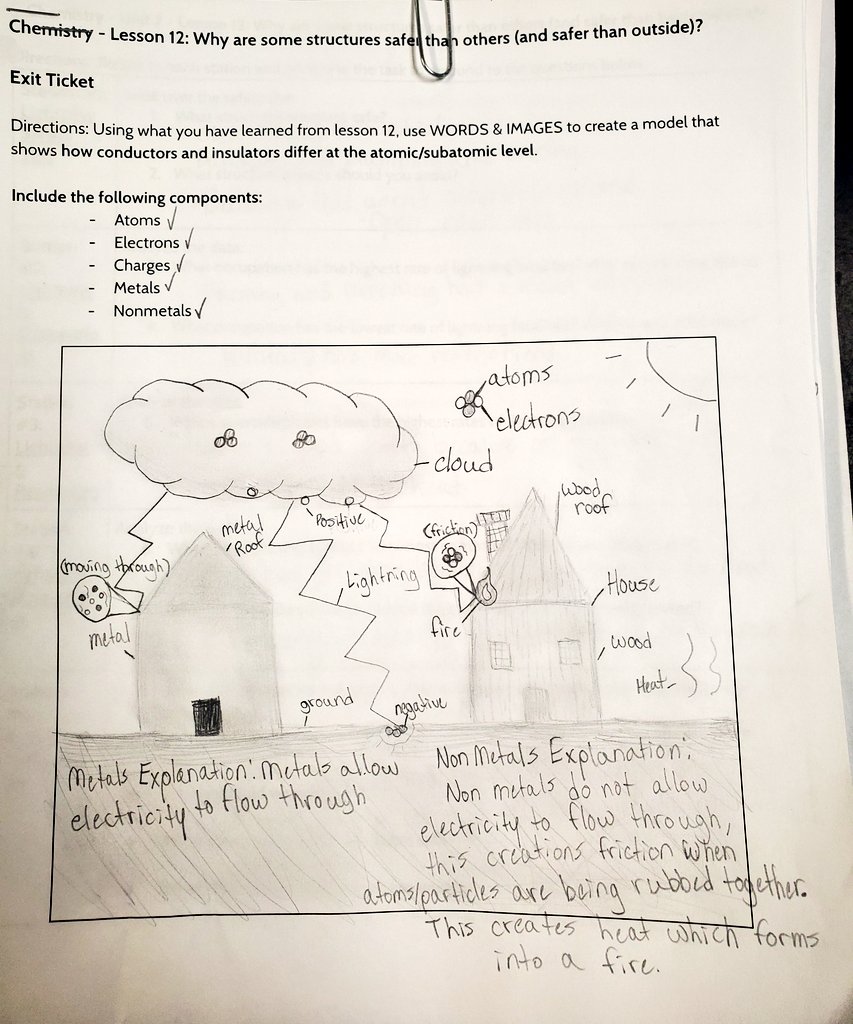 Chemistry - Lesson 12: Why are some structures safer than others (and safer than outside)?
Exit Ticket
Directions: Using what you have learned from lesson 12, use WORDS & IMAGES to create a model that
shows how conductors and insulators differ at the atomic/subatomic level.
Include the following components:
- Atoms ✓
- Electrons ✓
- Charges ✓
- Metals ✓
- Nonmetals ✓
atoms
electrons
cloud
Positive
metal
Roof
(friction)
wood
roof
(moving through)
Lightning
House
metal
fire
wood
Heat
ground
negative
Metals Explanation: Metals allow
electricity to flow through
Non Metals Explanation:
Non metals do not allow
electricity to flow through,
this creations friction when
atoms/particles are being rubbed together.
This creates heat which forms
into a fire.